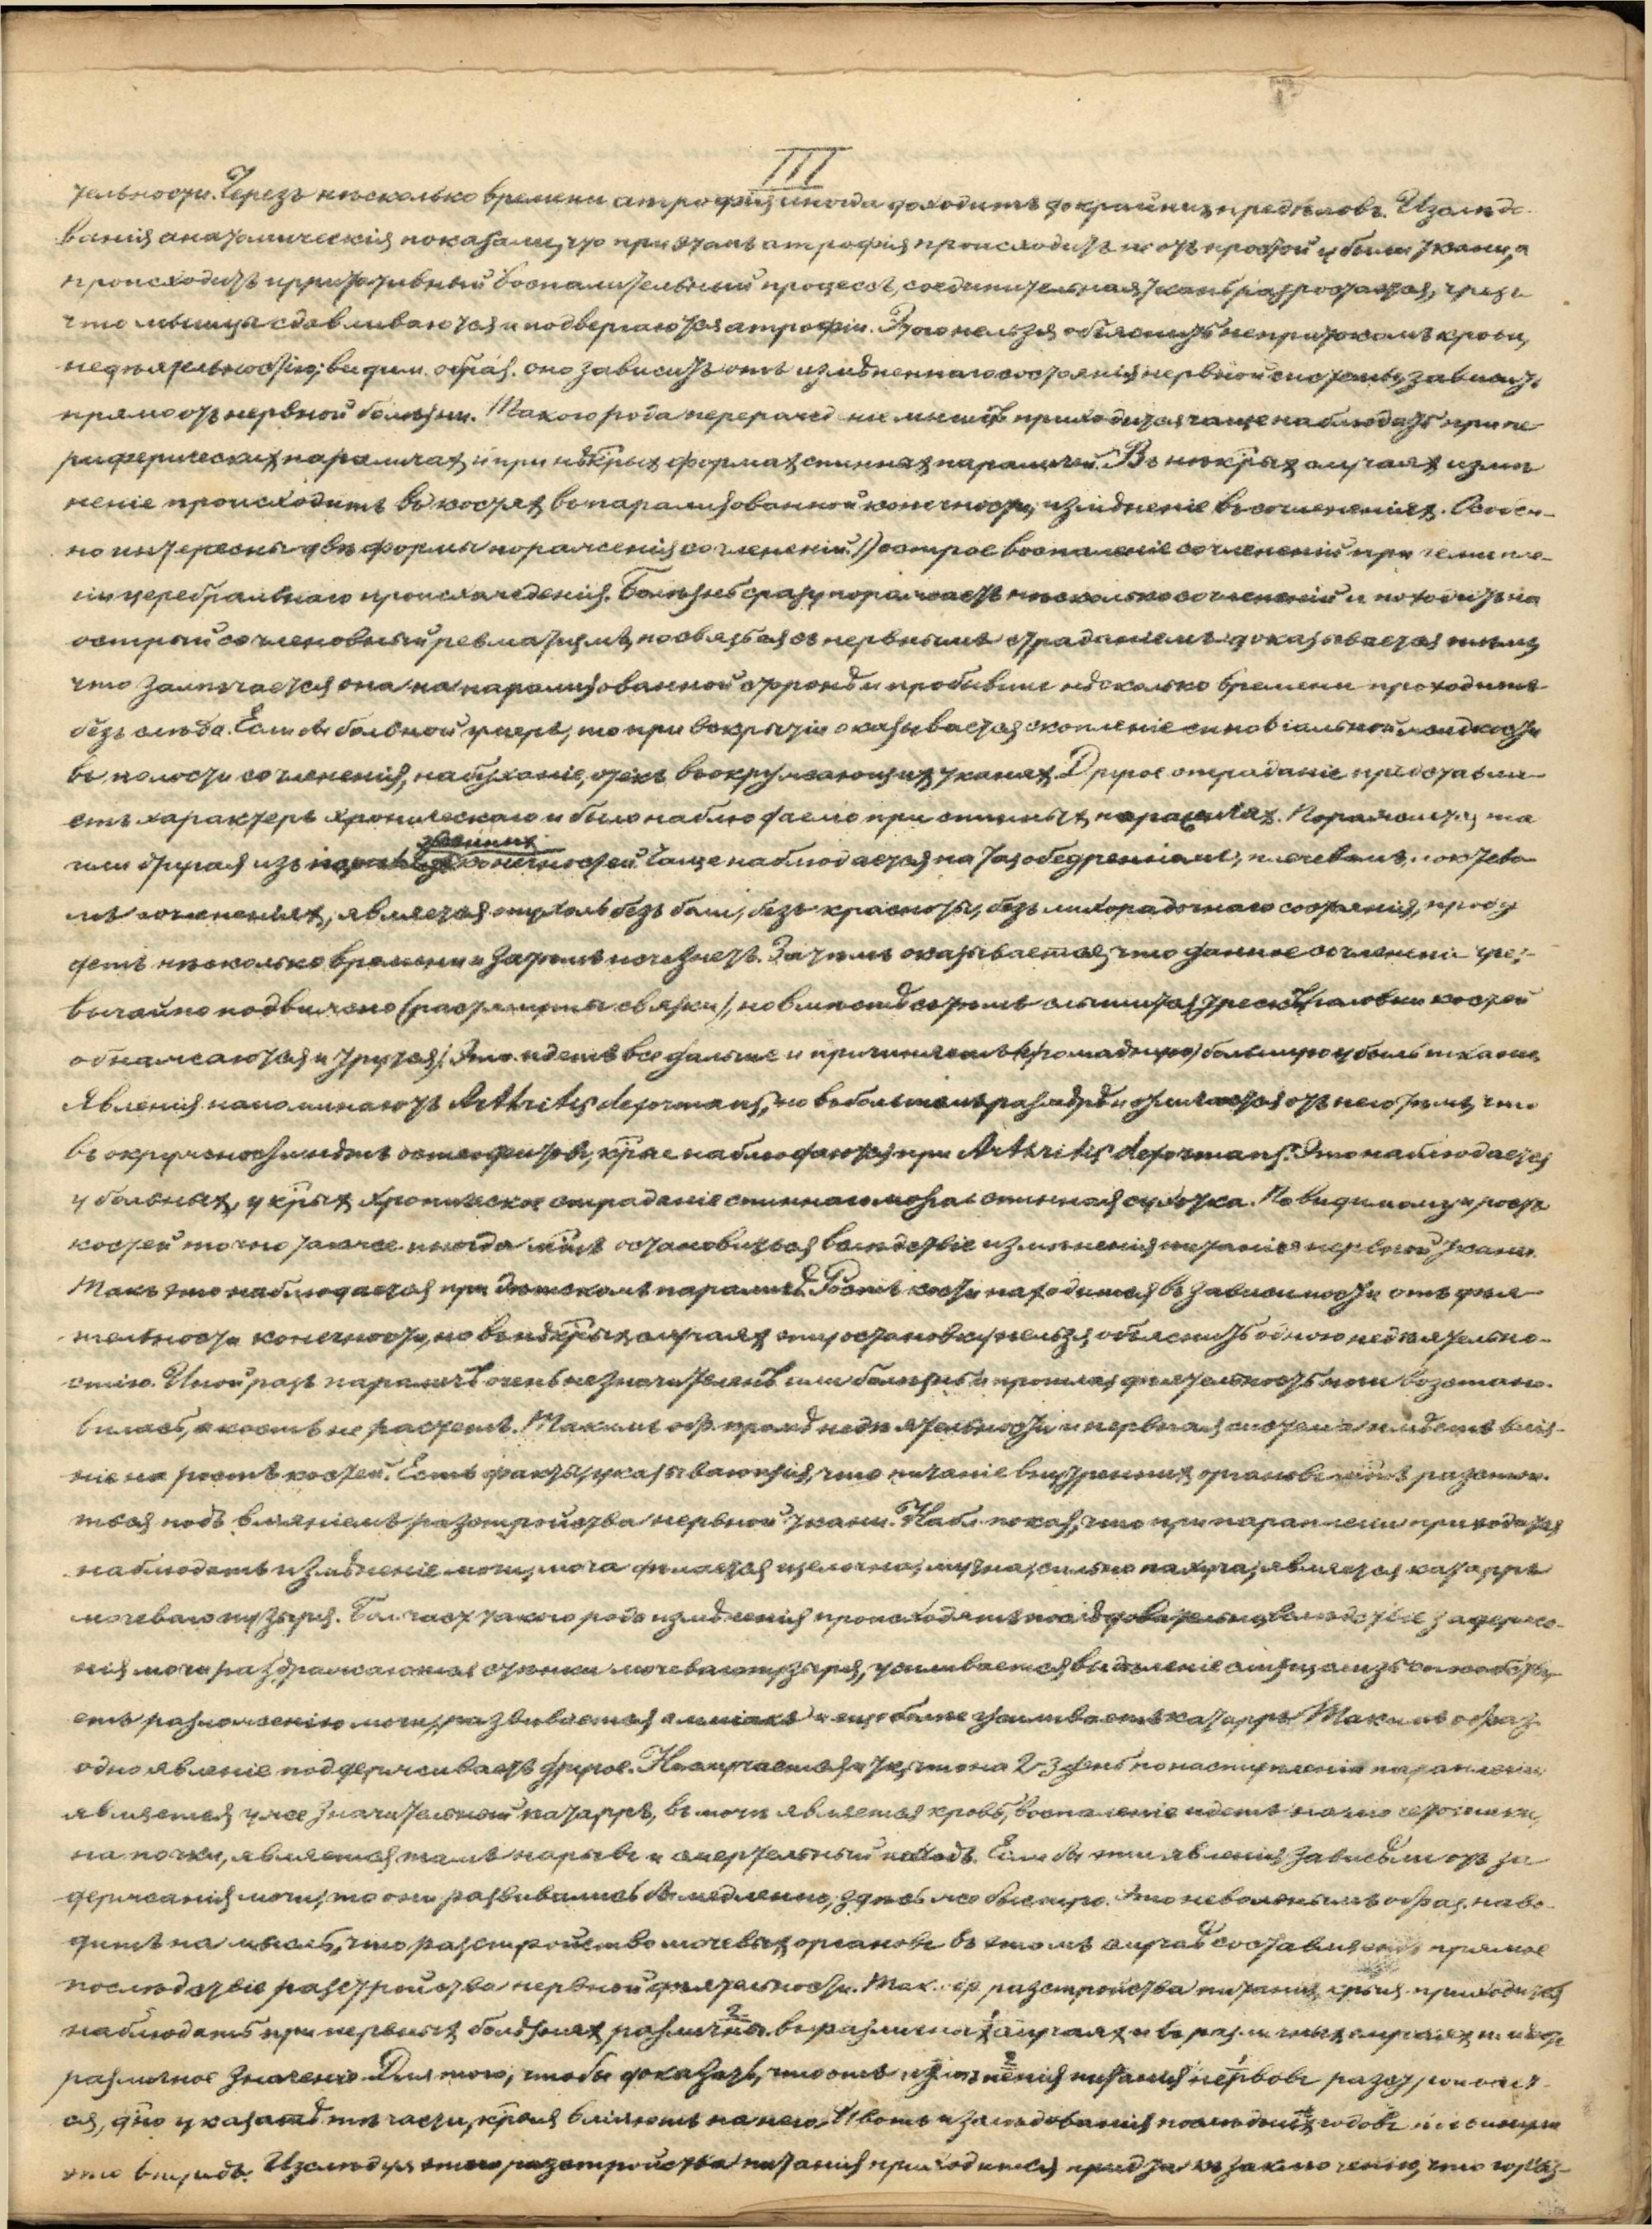 III
тельности. Черезъ нѣсколько времени атрофія иногда доходитъ до крайнихъ предѣловъ. Изслѣдо-
ванія анатомическія показали, что при этомъ атрофія происходитъ не отъ простой убыли ткани, а
происходитъ ирритативный воспалительный процессъ, соединительная ткань разростается, чрезъ
что мышцы сдавливаются и подвергаются атрофіи. Этого нельзя объяснить непритокомъ крови,
недѣятельностію; видим. образ. оно зависитъ отъ измѣненнаго состоянія нервной системы, зависитъ
прямо отъ нервной болѣзни. Такого рода перерожд. мышцъ приходится чаще наблюдать при пе-
риферическихъ параличахъ и при нѣкрыхъ формахъ спинныхъ параличей. Въ нѣкрыхъ случаяхъ измѣ
неніе происходитъ въ костяхъ въ парализованной конечности, измѣненіе въ сочлененіяхъ. Особен-
но интересны двѣ формы пораженія сочлененій: 1) острое воспаленіе сочлененій при гемипле-
гіи церебральнаго происхожденія. Болѣзнь сразу поражаетъ нѣсколько сочлененій и походитъ на
острый сочленовный ревматизмъ, но связь ея съ нервнымъ страданіемъ доказывается тѣмъ,
что замѣчается она на парализованной сторонѣ и пробывши нѣсколько времени проходитъ
безъ слѣда. Если бы больной умеръ, то при вскрытіи оказывается скопленіе синовіальной жидкости
въ полости сочлененія, набуханіе, отекъ въ окружающихъ тканяхъ. Другое страданіе представля-
етъ характеръ хроническаго и было наблюдаемо при спинныхъ параличахъ. Поражается та
или другая изъ конечностей. Чаще наблюдается на тазобедренномъ, плечевомъ, локтево
мъ сочлененіяхъ, является опухоль безъ боли, безъ красноты, безъ лихорадочнаго состоянія, пробу
детъ нѣсколько времени и затѣмъ исчезнетъ. Затѣмъ оказывается, что данное сочлененіе чрез-
вычайно подвижно (растянуты связки), но вмѣстѣ съ тѣмъ слышится трескъ (головки костей
обнажаются и трутся). Это идетъ все дальше и причиняетъ (громадную) большую убыль ткани.
Явленія напоминаютъ Arthritis deformans, но въ большемъ размѣрѣ и отличается отъ него тѣмъ, что
въ окружности нѣтъ остеофитовъ, крые наблюдаются при Arthritis deformans. Это наблюдается
у больныхъ, у крыхъ хроническое страданіе спиннаго мозга спинная сухотка. Повидимому и ростъ
костей точно также иногда можетъ остановиться вслѣдствіе измѣненія питанія нервной ткани.
Такъ это наблюдается при дѣтскомъ параличѣ. Ростъ кости находится въ зависимости отъ дѣя
тельности конечности, но въ нѣкрыхъ случаяхъ эту остановку нельзя объяснить одною недѣятельно-
стію. Иной разъ параличъ очень незначителенъ или болѣзнь и прошла, дѣятельность мыш возстано-
вилась, а кость не растетъ. Такимъ обр. кромѣ недѣятельности и нервная система имѣетъ влія-
ніе на ростъ костей. Есть факты, указывающіе, что питаніе внутреннихъ органовъ можетъ разстрои-
ться подъ вліяніемъ разстройства нервной ткани. Набл. показ., что при параплегіи приходится
наблюдать измѣненіе мочи, моча дѣлается щелочна, мутна, сильно пахуча, является катарръ
мочеваго пузыря. Бол. част такого рода измѣненія происходятъ вслѣдствіе задержа-
нія мочи раздражаются стѣнки мочеваго пузыря, усиливается выдѣленіе слизи, а слизь способству
етъ разложенію мочи, развивается амміакъ и еще болѣе усиливаетъ катарръ. Такимъ образ.
одно явленіе поддерживаетъ другое. Но случается и тк, что на 2-3 день по наступленіи параплегіи
является уже значительный катарръ, въ мочѣ является кровь, воспаленіе идетъ на мочеточники,
на почки, являются тамъ нарывы и смертельный исходъ. Если бы эти явленія зависѣли отъ за
держанія мочи, то они развивались бы медленно, здѣсь же быстро. Это невольнымъ образ. наво-
дитъ на мысль, что разстройство мочевыхъ органовъ въ этомъ случаѣ составляетъ прямое
послѣдствіе разстройства нервной дѣятельности. Так. обр. разстройства питанія, крыя приходится
наблюдать при нервныхъ болѣзняхъ различны въ различныхъ случаяхъ и въ различныхъ случаяхъ имѣютъ
различное значеніе. Для того, чтобы доказать, что отъ измѣненія питанія нервовъ разстроивает-
ся, д̃но указать тѣ части, крыя вліяютъ на него. И вотъ изслѣдованія послѣднихъ годовъ подвинули
это впередъ. Изслѣдуя этого разстройства питанія приходится придти къ заключенію, что гораз-